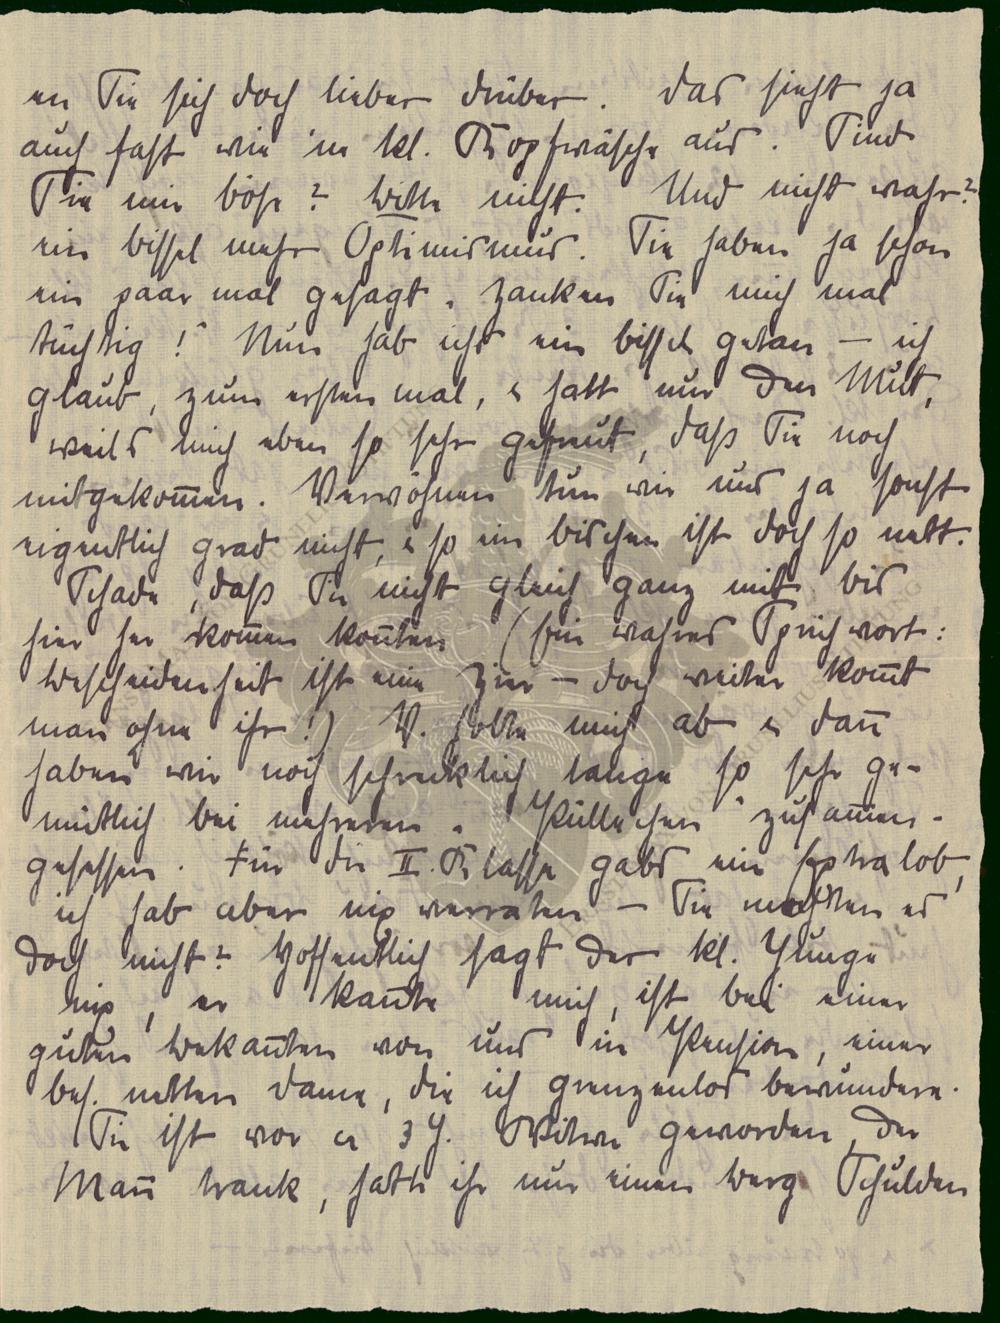 en Sie sich doch lieber drüber. Das sieht ja
auch fast wie 'ne kl. Kopfwäsche aus. Sind
Sie mir böse? Bitte nicht. Und nicht wahr?
ein bissel mehr Optimismus. Sie haben ja schon
ein paar mal gesagt „Zanken Sie mich mal
tüchtig!" Nun hab ichs ein bissel getan – ich
glaub, zum ersten mal, u hatt nur den Mut,
weils mich eben so sehr gefreut, daß Sie noch
mitgekom̅en. Verwöhnen tun wir uns ja sonst
eigentlich grad nicht, u so ein bischen ist doch so nett.
Schade, daß Sie nicht gleich ganz mit bis
hier her kom̅en kon̅ten (Ein wahres Sprichwort:
Bescheidenheit ist eine Zier – doch weiter kom̅t
man ohne ihr!) V. holte mich ab u dan̅
haben wir noch schrecklich lange so sehr ge-
mütlich bei mehreren „Pullechen" zusam̅en-
gesessen. Für die II. Klasse gabs ein Extralob,
ich hab aber nix verraten – Sie möchten es
doch nicht? Hoffentlich sagt der kl. Junge
nix, er kan̅te mich, ist bei einer
guten Bekan̅ten von uns in Pension, einer
bes. netten Dame, die ich grenzenlos bewundere.
Sie ist vor ca 3 J. Witwe geworden, der
Man̅ trank, hatte ihr nur einen Berg Schulden